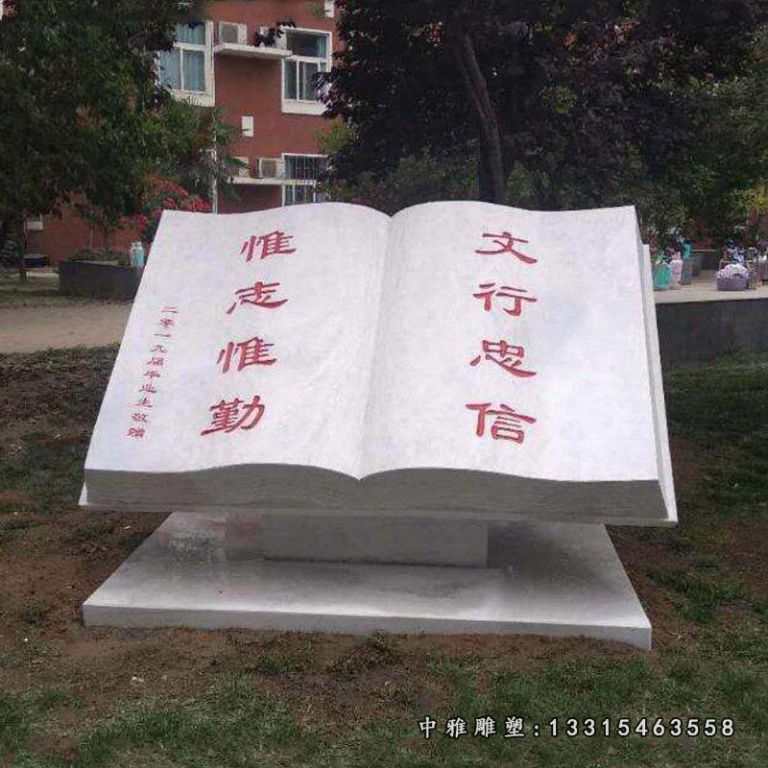 文行忠信
惟志惟勤
二零一九届毕业生敬赠
中雅雕塑:13315463558